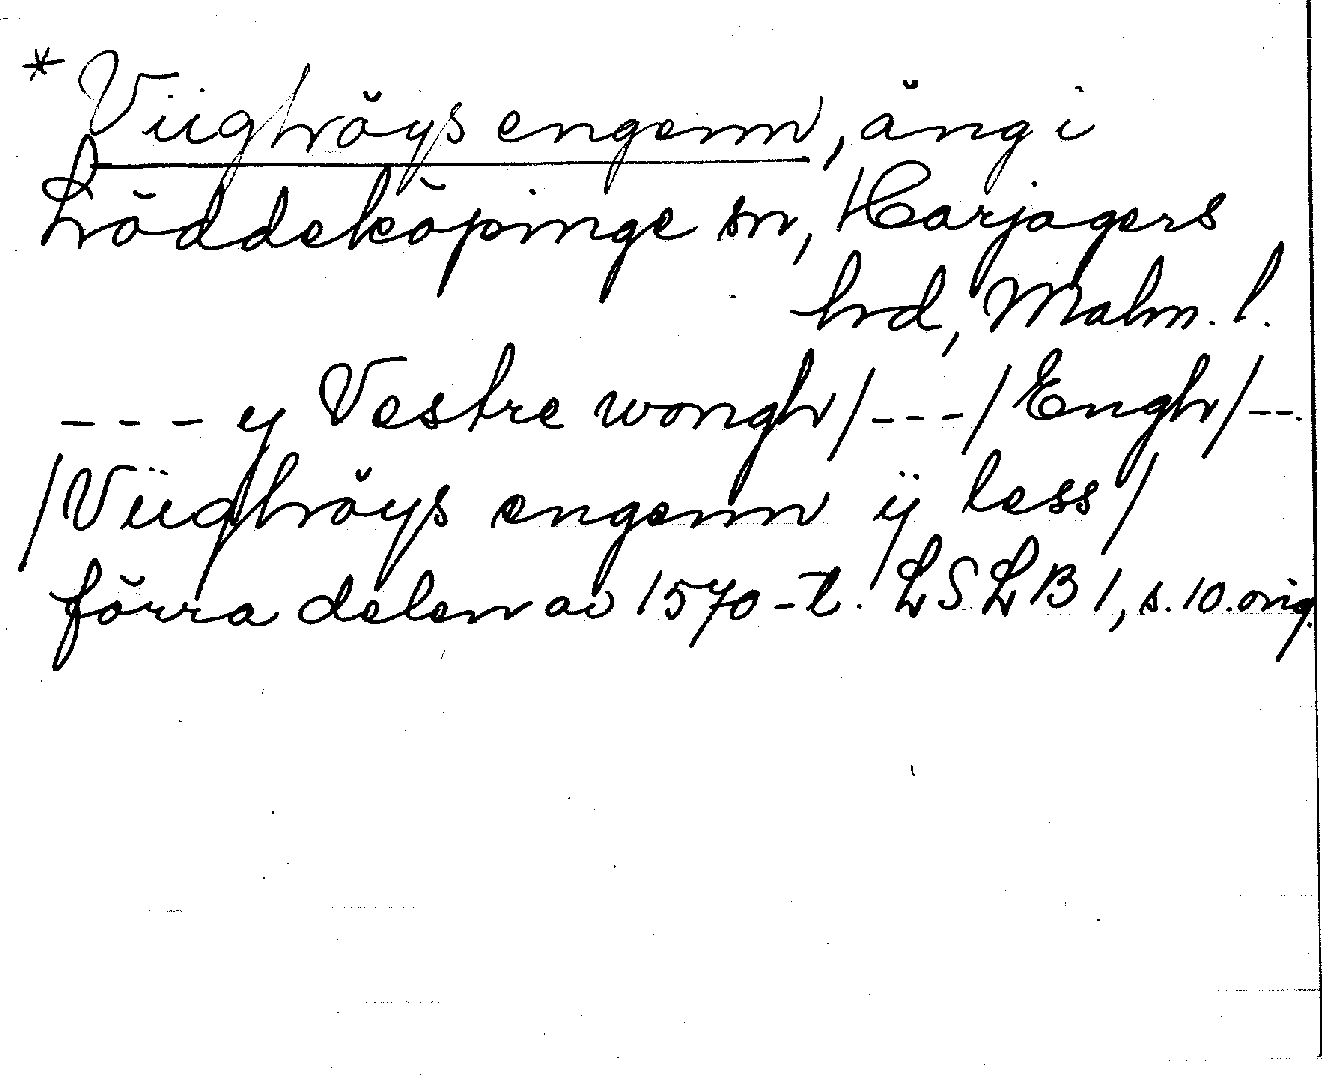 * Viighröys engenn, äng i
Löddeköpinge sn, Harjagers
hrd, Malm. l.
--- y Vestre wongh/---/Engh/--
/Viighröys engenn ÿ less/
förra delen av 1570-t. LSLB 1, s. 10. orig.